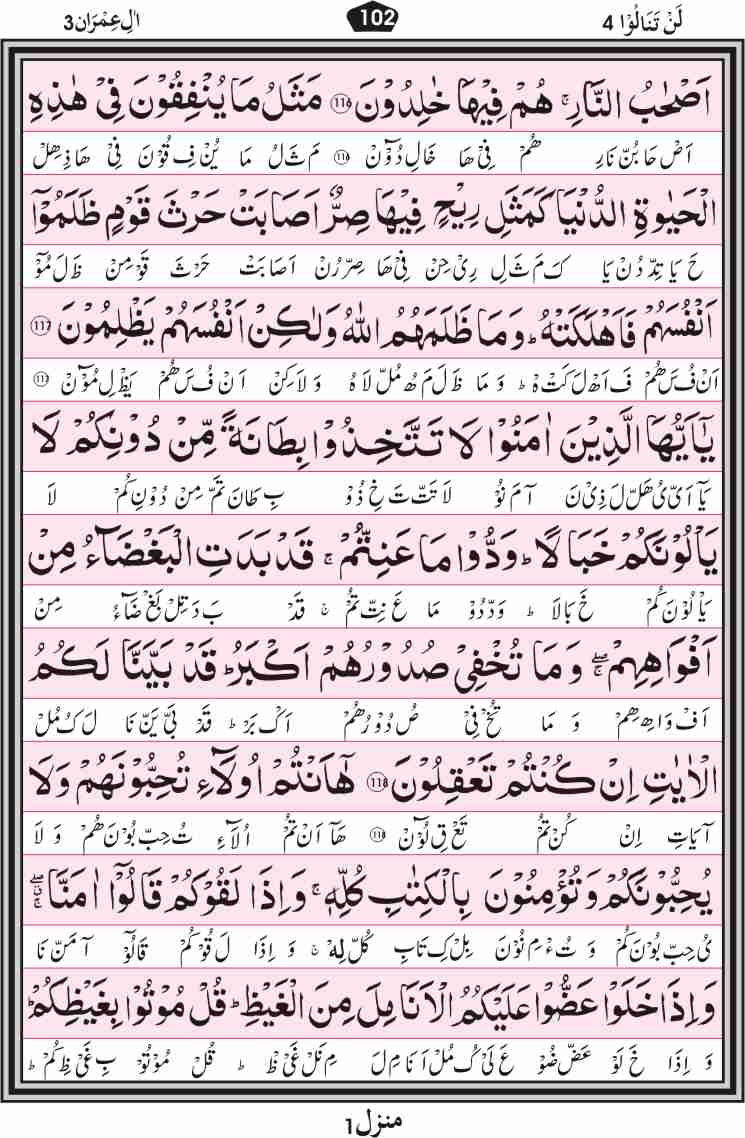 لَنْ تَنَالُوْا 4
102
اٰلِ عِمْرَان3
اَصْحٰبُ النَّارِ ۚ هُمْ فِيْهَا خٰلِدُوْنَ ۝116 مَثَلُ مَا يُنْفِقُوْنَ فِيْ هٰذِهِ
اَصْ حَا بُنْ نَارِ هُمْ فِىْ هَا خَالِ دُوْٓنْ ۝116 مَ ثَ لُ مَا يُنْ فِ قُوْنَ فِىْ هَا ذِ هِلْ
الْحَيٰوةِ الدُّنْيَا كَمَثَلِ رِيْحٍ فِيْهَا صِرٌّ اَصَابَتْ حَرْثَ قَوْمٍ ظَلَمُوْٓا
حَ يَا تِدْ دُنْ يَا كَ مَ ثَ لِ رِىْ حِنْ فِىْ هَا صِرْ رُنْ اَصَابَتْ حَرْثَ قَوْ مِنْ ظَ لَ مُوْٓ
اَنْفُسَهُمْ فَاَهْلَكَتْهُ ؕ وَمَا ظَلَمَهُمُ اللّٰهُ وَلٰكِنْ اَنْفُسَهُمْ يَظْلِمُوْنَ ۝117
اَنْ فُ سَ هُمْ فَ اَهْ لَ كَتْ هْ ؕ وَ مَا ظَ لَ مَ هُمُ لْ لَا هُ وَ لَا كِنْ اَنْ فُ سَ هُمْ يَظْ لِ مُوْٓنْ ۝117
يٰٓاَيُّهَا الَّذِيْنَ اٰمَنُوْا لَا تَتَّخِذُوْا بِطَانَةً مِّنْ دُوْنِكُمْ لَا
يَآ اَىْ يُ هَلْ لَ ذِىْ نَ آ مَ نُوْ لَا تَتْ تَ خِ ذُوْ بِ طَانَ تَمْ مِنْ دُوْنِ كُمْ لَا
يَاْلُوْنَكُمْ خَبَالًا ؕ وَدُّوْا مَا عَنِتُّمْ ۚ قَدْ بَدَتِ الْبَغْضَآءُ مِنْ
يَاْ لُوْنَ كُمْ خَ بَالَا ؕ وَدْ دُوْ مَا عَ نِتْ تُمْ ۚ قَدْ بَ دَ تِلْ بَغْ ضَآءُ مِنْ
اَفْوَاهِهِمْ ۖۚ وَمَا تُخْفِيْ صُدُوْرُهُمْ اَكْبَرُ ؕ قَدْ بَيَّنَّا لَكُمُ
اَفْ وَا هِ هِمْ وَ مَا تُخْ فِىْ صُ دُوْرُ هُمْ اَكْ بَرْ ؕ قَدْ بَىْ يَنْ نَا لَ كُ مُلْ
الْاٰيٰتِ اِنْ كُنْتُمْ تَعْقِلُوْنَ ۝118 هٰٓاَنْتُمْ اُولَآءِ تُحِبُّوْنَهُمْ وَلَا
آيَاتِ اِنْ كُنْ تُمْ تَعْ قِ لُوْٓنْ ۝118 هَآ اَنْ تُمْ اُلَآءِ تُ حِبْ بُوْنَ هُمْ وَ لَا
يُحِبُّوْنَكُمْ وَتُؤْمِنُوْنَ بِالْكِتٰبِ كُلِّهٖ ۚ وَاِذَا لَقُوْكُمْ قَالُوْٓا اٰمَنَّا ۖۚ
يُ حِبْ بُوْنَ كُمْ وَ تُ ءْ مِ نُوْنَ بِلْ كِ تَابِ كُلْ لِهْ ۚ وَ اِذَا لَ قُوْ كُمْ قَالُوْٓ آ مَنْ نَا
وَاِذَا خَلَوْا عَضُّوْا عَلَيْكُمُ الْاَنَامِلَ مِنَ الْغَيْظِ ؕ قُلْ مُوْتُوْا بِغَيْظِكُمْ ؕ
وَ اِذَا خَ لَوْ عَضْ ضُوْ عَ لَىْ كُ مُلْ اَ نَا مِ لَ مِ نَلْ غَىْ ظْ ؕ قُلْ مُوْتُوْ بِ غَىْ ظِ كُمْ ؕ
منزل 1